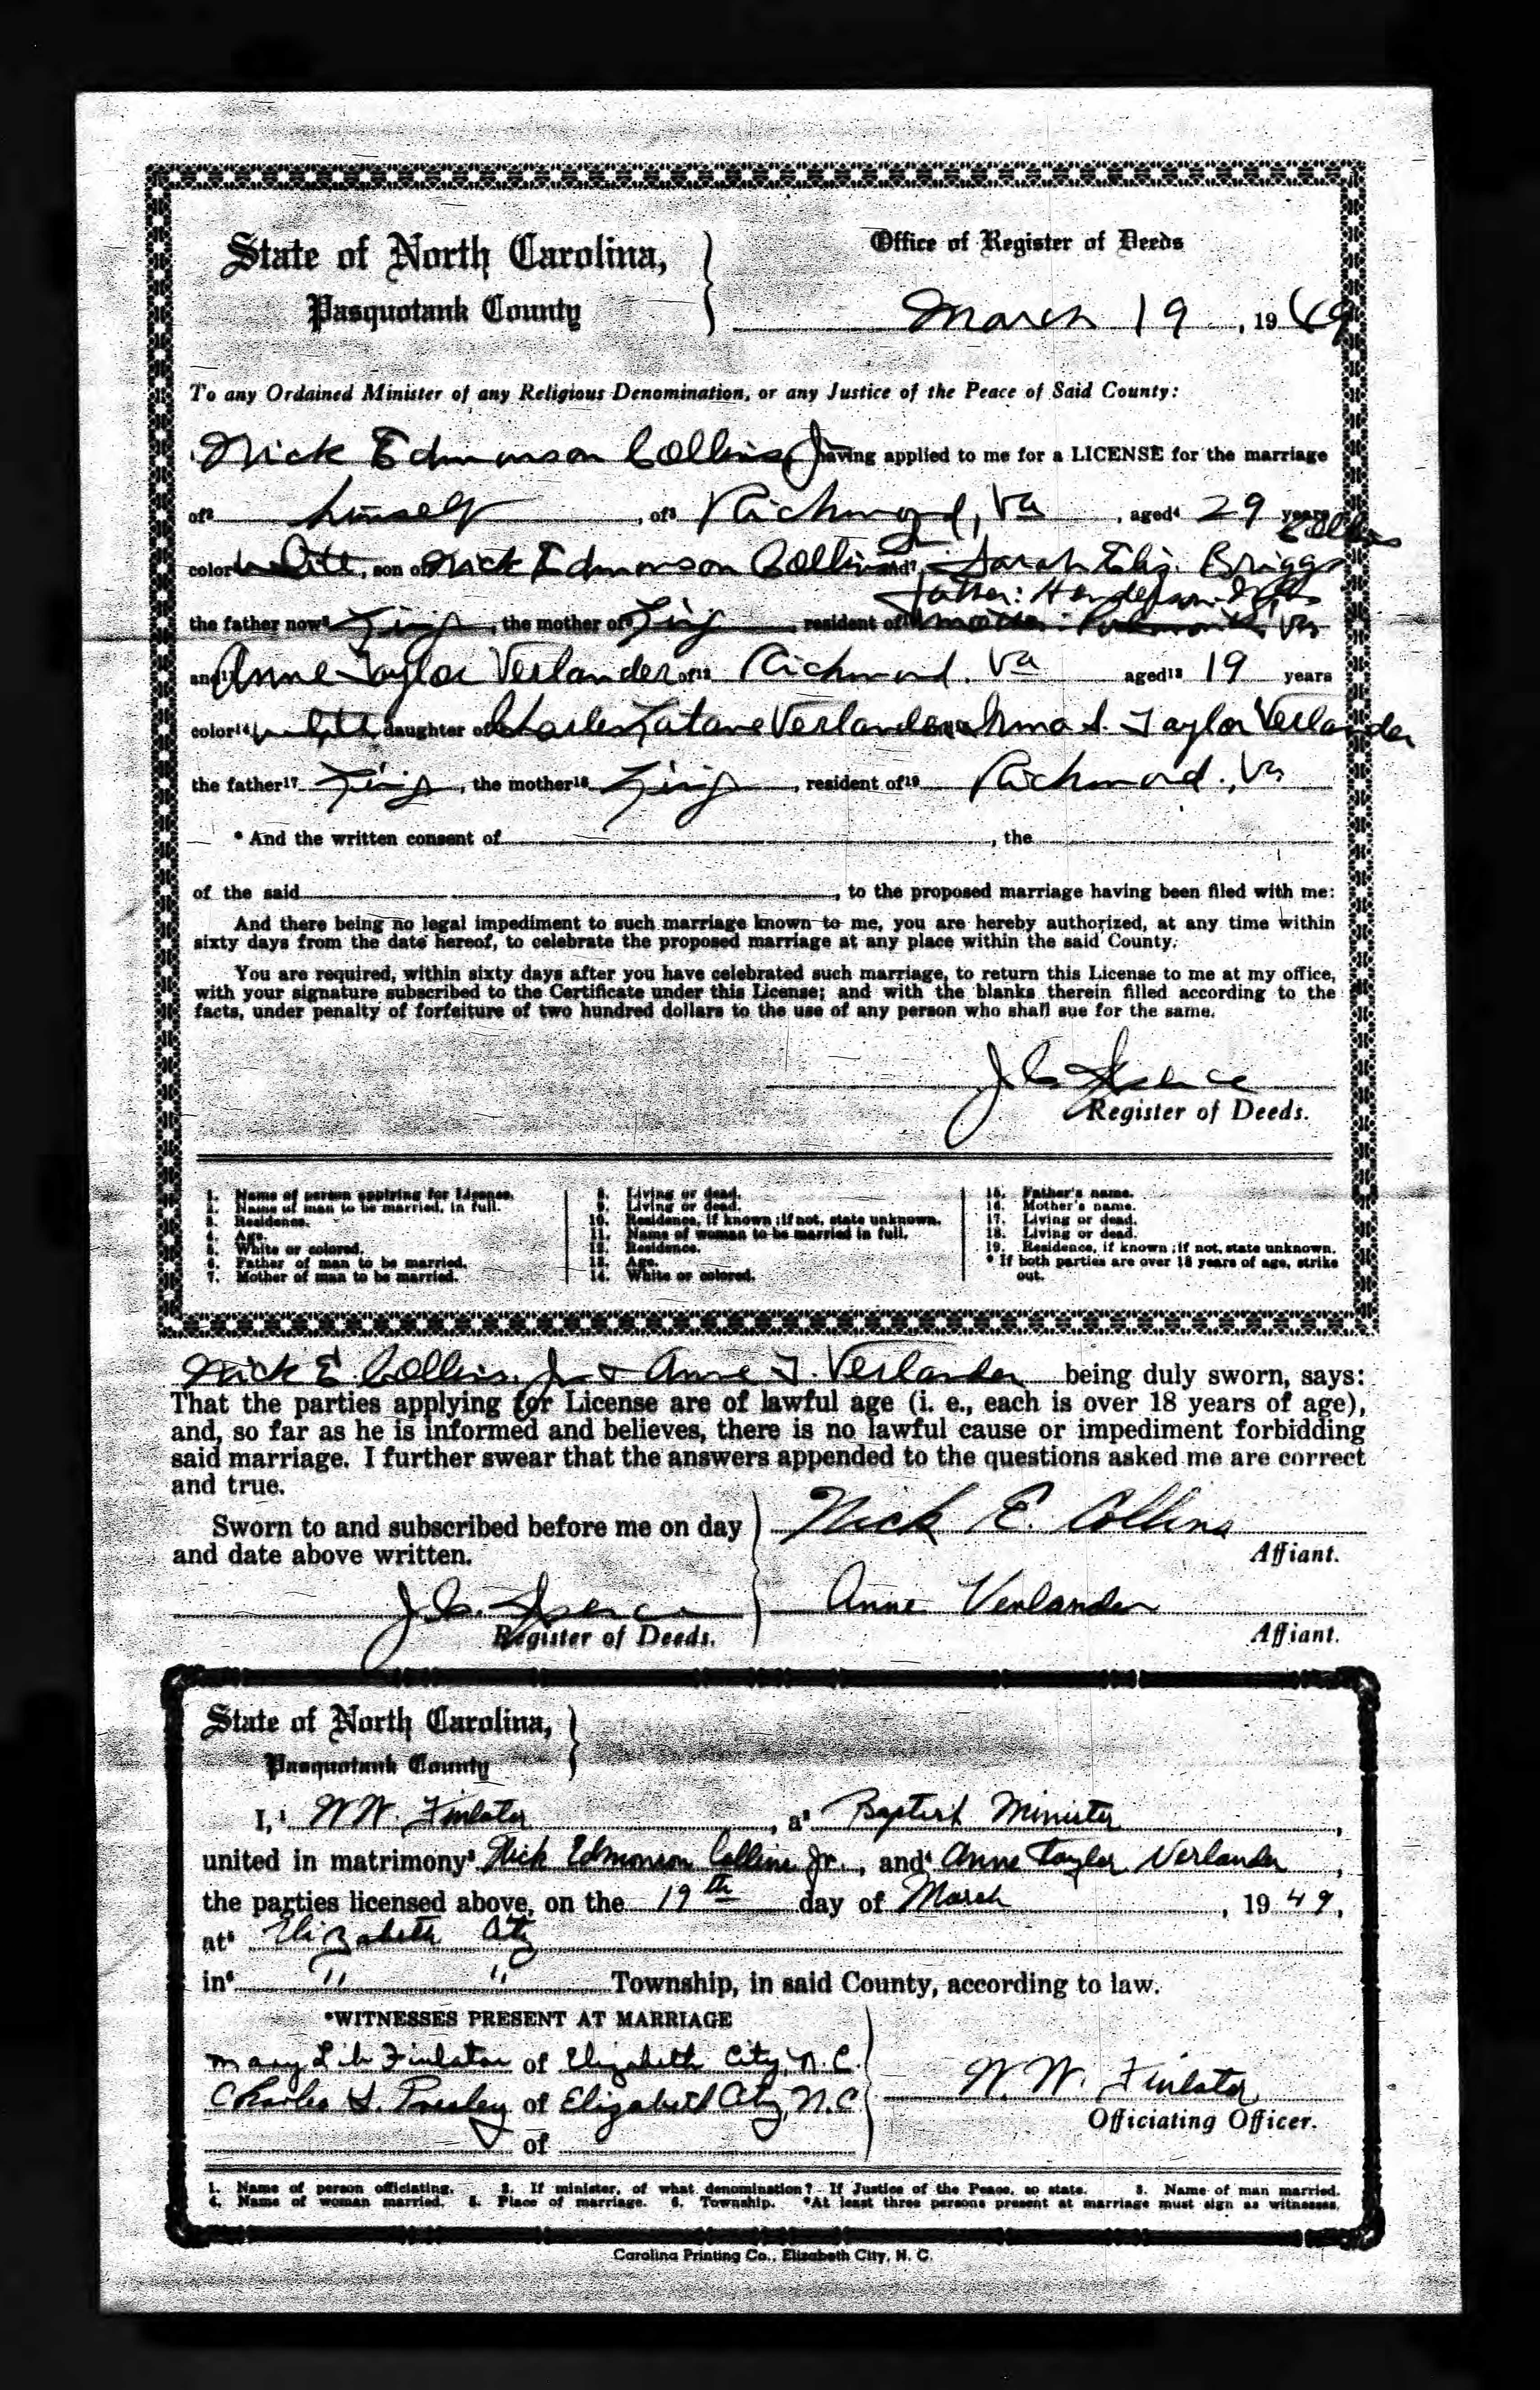 State of North Carolina,
Pasquotank County
Office of Register of Deeds
March 19, 1949
To any Ordained Minister of any Religious Denomination, or any Justice of the Peace of Said County:
Nick Edmonson Collins, Jr having applied to me for a LICENSE for the marriage
of² himself, of³ Richmond, Va, aged⁴ 29 years
Collins
color white, son of Nick Edmonson Collins Sr and⁷ Sarah Eliz. Briggs
father: Henderson
the father now⁸ Living, the mother of⁹ Living, resident of¹⁰ mother: Richmond, Va
and¹¹ Anne Taylor Verlander of¹² Richmond, Va aged¹³ 19 years
color¹⁴ white daughter of Charles Latane Verlander and Irma S. Taylor Verlander
the father¹⁷ Living, the mother¹⁸ Living, resident of¹⁹ Richmond, Va
* And the written consent of, the
of the said, to the proposed marriage having been filed with me:
And there being no legal impediment to such marriage known to me, you are hereby authorized, at any time within
sixty days from the date hereof, to celebrate the proposed marriage at any place within the said County.
You are required, within sixty days after you have celebrated such marriage, to return this License to me at my office,
with your signature subscribed to the Certificate under this License; and with the blanks therein filled according to the
facts, under penalty of forfeiture of two hundred dollars to the use of any person who shall sue for the same.
J. C. Spence
Register of Deeds.
1. Name of person applying for License.
2. Name of man to be married, in full.
3. Residence.
4. Age.
5. White or colored.
6. Father of man to be married.
7. Mother of man to be married.
8. Living or dead.
9. Living or dead.
10. Residence, if known; if not, state unknown.
11. Name of woman to be married in full.
12. Residence.
13. Age.
14. White or colored.
15. Father's name.
16. Mother's name.
17. Living or dead.
18. Living or dead.
19. Residence, if known; if not, state unknown.
* If both parties are over 18 years of age, strike
out.
Nick E Collins, Jr & Anne T. Verlander being duly sworn, says:
That the parties applying for License are of lawful age (i. e., each is over 18 years of age),
and, so far as he is informed and believes, there is no lawful cause or impediment forbidding
said marriage. I further swear that the answers appended to the questions asked me are correct
and true.
Sworn to and subscribed before me on day
and date above written.
Nick E. Collins
Affiant.
J. C. Spence
Register of Deeds.
Anne Verlander
Affiant.
State of North Carolina,
Pasquotank County
I,¹ W. W. Finlator, a² Baptist Minister,
united in matrimony³ Nick Edmonson Collins Jr., and⁴ Anne Taylor Verlander,
the parties licensed above, on the 19th day of March, 1949,
at⁵ Elizabeth City
in⁶ " " Township, in said County, according to law.
*WITNESSES PRESENT AT MARRIAGE
Mary Lib Finlator of Elizabeth City, N.C.
Charles L. Presley of Elizabeth City, N.C.
of
W. W. Finlator
Officiating Officer.
1. Name of person officiating. 2. If minister, of what denomination? If Justice of the Peace, so state. 3. Name of man married.
4. Name of woman married. 5. Place of marriage. 6. Township. *At least three persons present at marriage must sign as witnesses.
Carolina Printing Co., Elizabeth City, N. C.